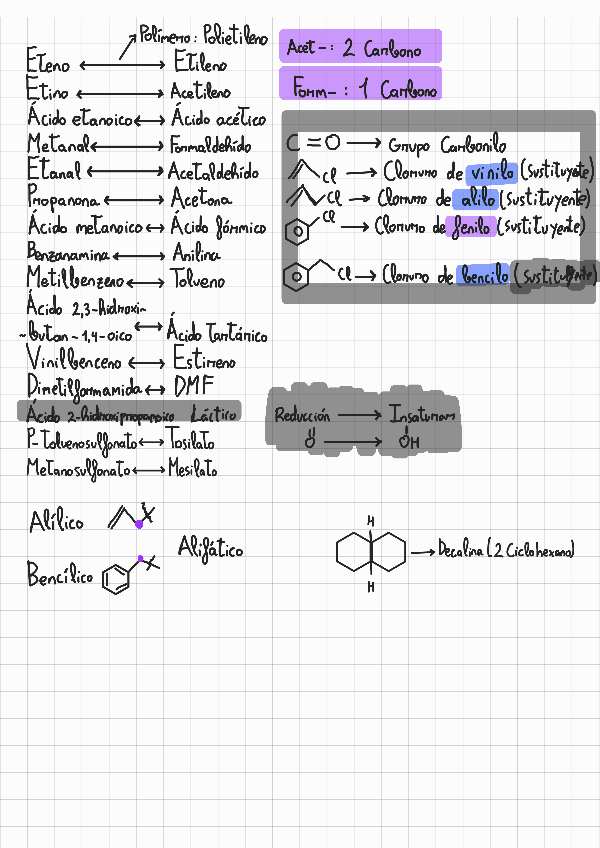 Polímero: Polietileno
Eteno ↔ Etileno
Etino ↔ Acetileno
Ácido etanoico ↔ Ácido acético
Metanal ↔ Formaldehído
Etanal ↔ Acetaldehído
Propanona ↔ Acetona
Ácido metanoico ↔ Ácido fórmico
Benzanamina ↔ Anilina
Metilbenzeno ↔ Tolueno
Ácido 2,3-hidroxi-
-butan-1,4-oico ↔ Ácido Tartárico
Vinilbenceno ↔ Estireno
Dimetilformamida ↔ DMF
Ácido 2-hidroxipropanoico Láctico
P-toluenosulfonato ↔ Tosilato
Metanosulfonato ↔ Mesilato
Acet-: 2 Carbono
Form-: 1 Carbono
C=O → Grupo Carbonilo
Cl → Cloruro de vinilo (sustituyente)
Cl → Cloruro de alilo (sustituyente)
Cl → Cloruro de fenilo (sustituyente)
Cl → Cloruro de bencilo (sustituyente)
Reducción → Insaturar
O → OH
Alílico
Alifático
Bencílico
H
→ Decalina (2 Ciclohexano)
H